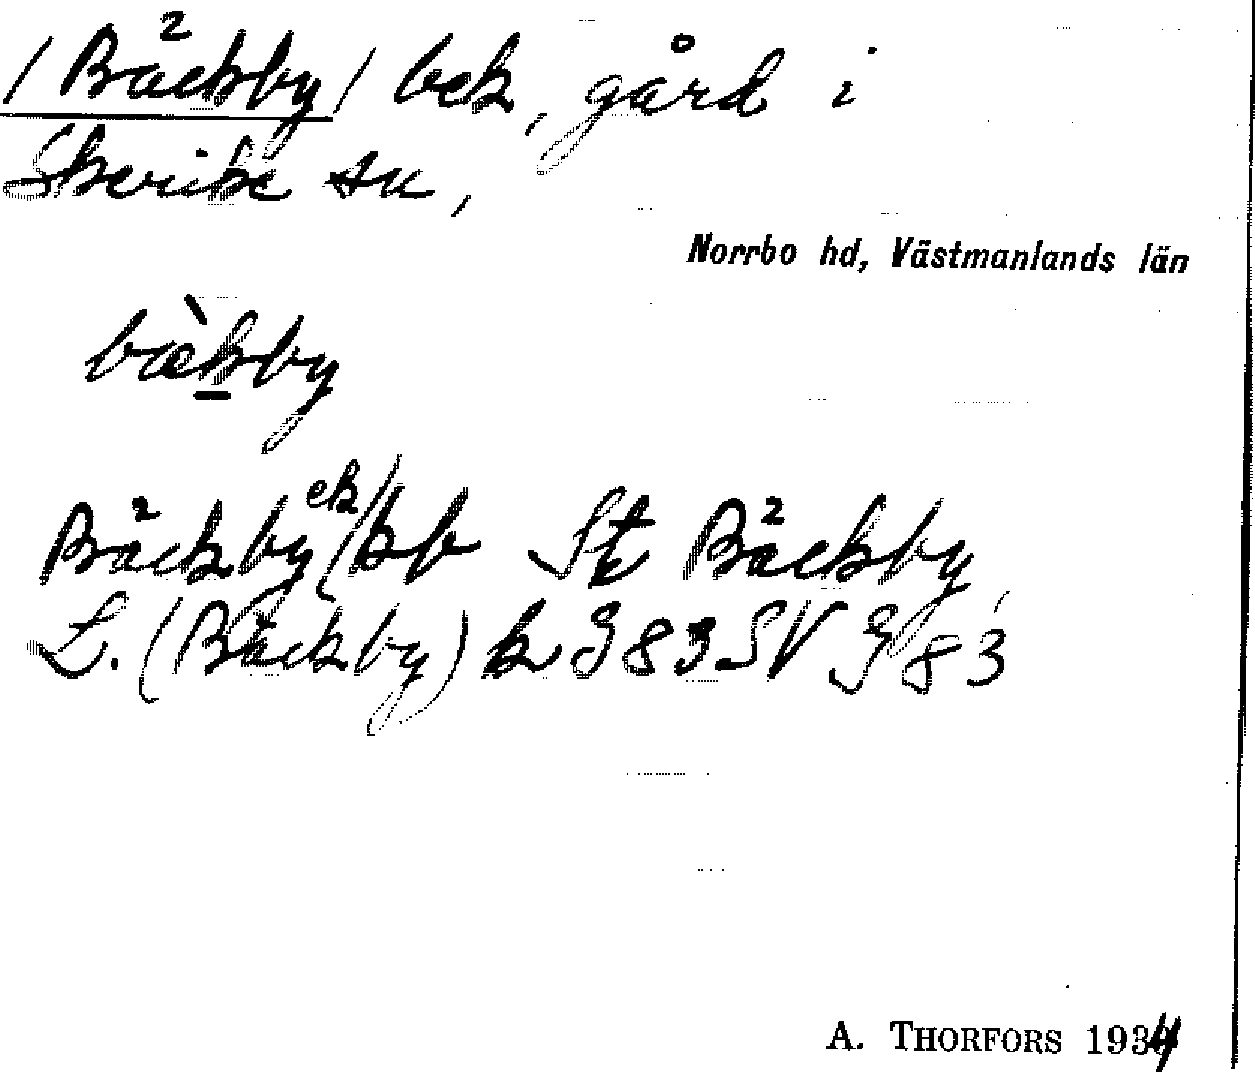 /Bäckby/ bek, gård i
Skerike sn,
Norrbo hd, Västmanlands län
bækby
Bäckby ek/kb St Bäckby
L. (Bäckby) k G 83 SV G 83
A. THORFORS 1934